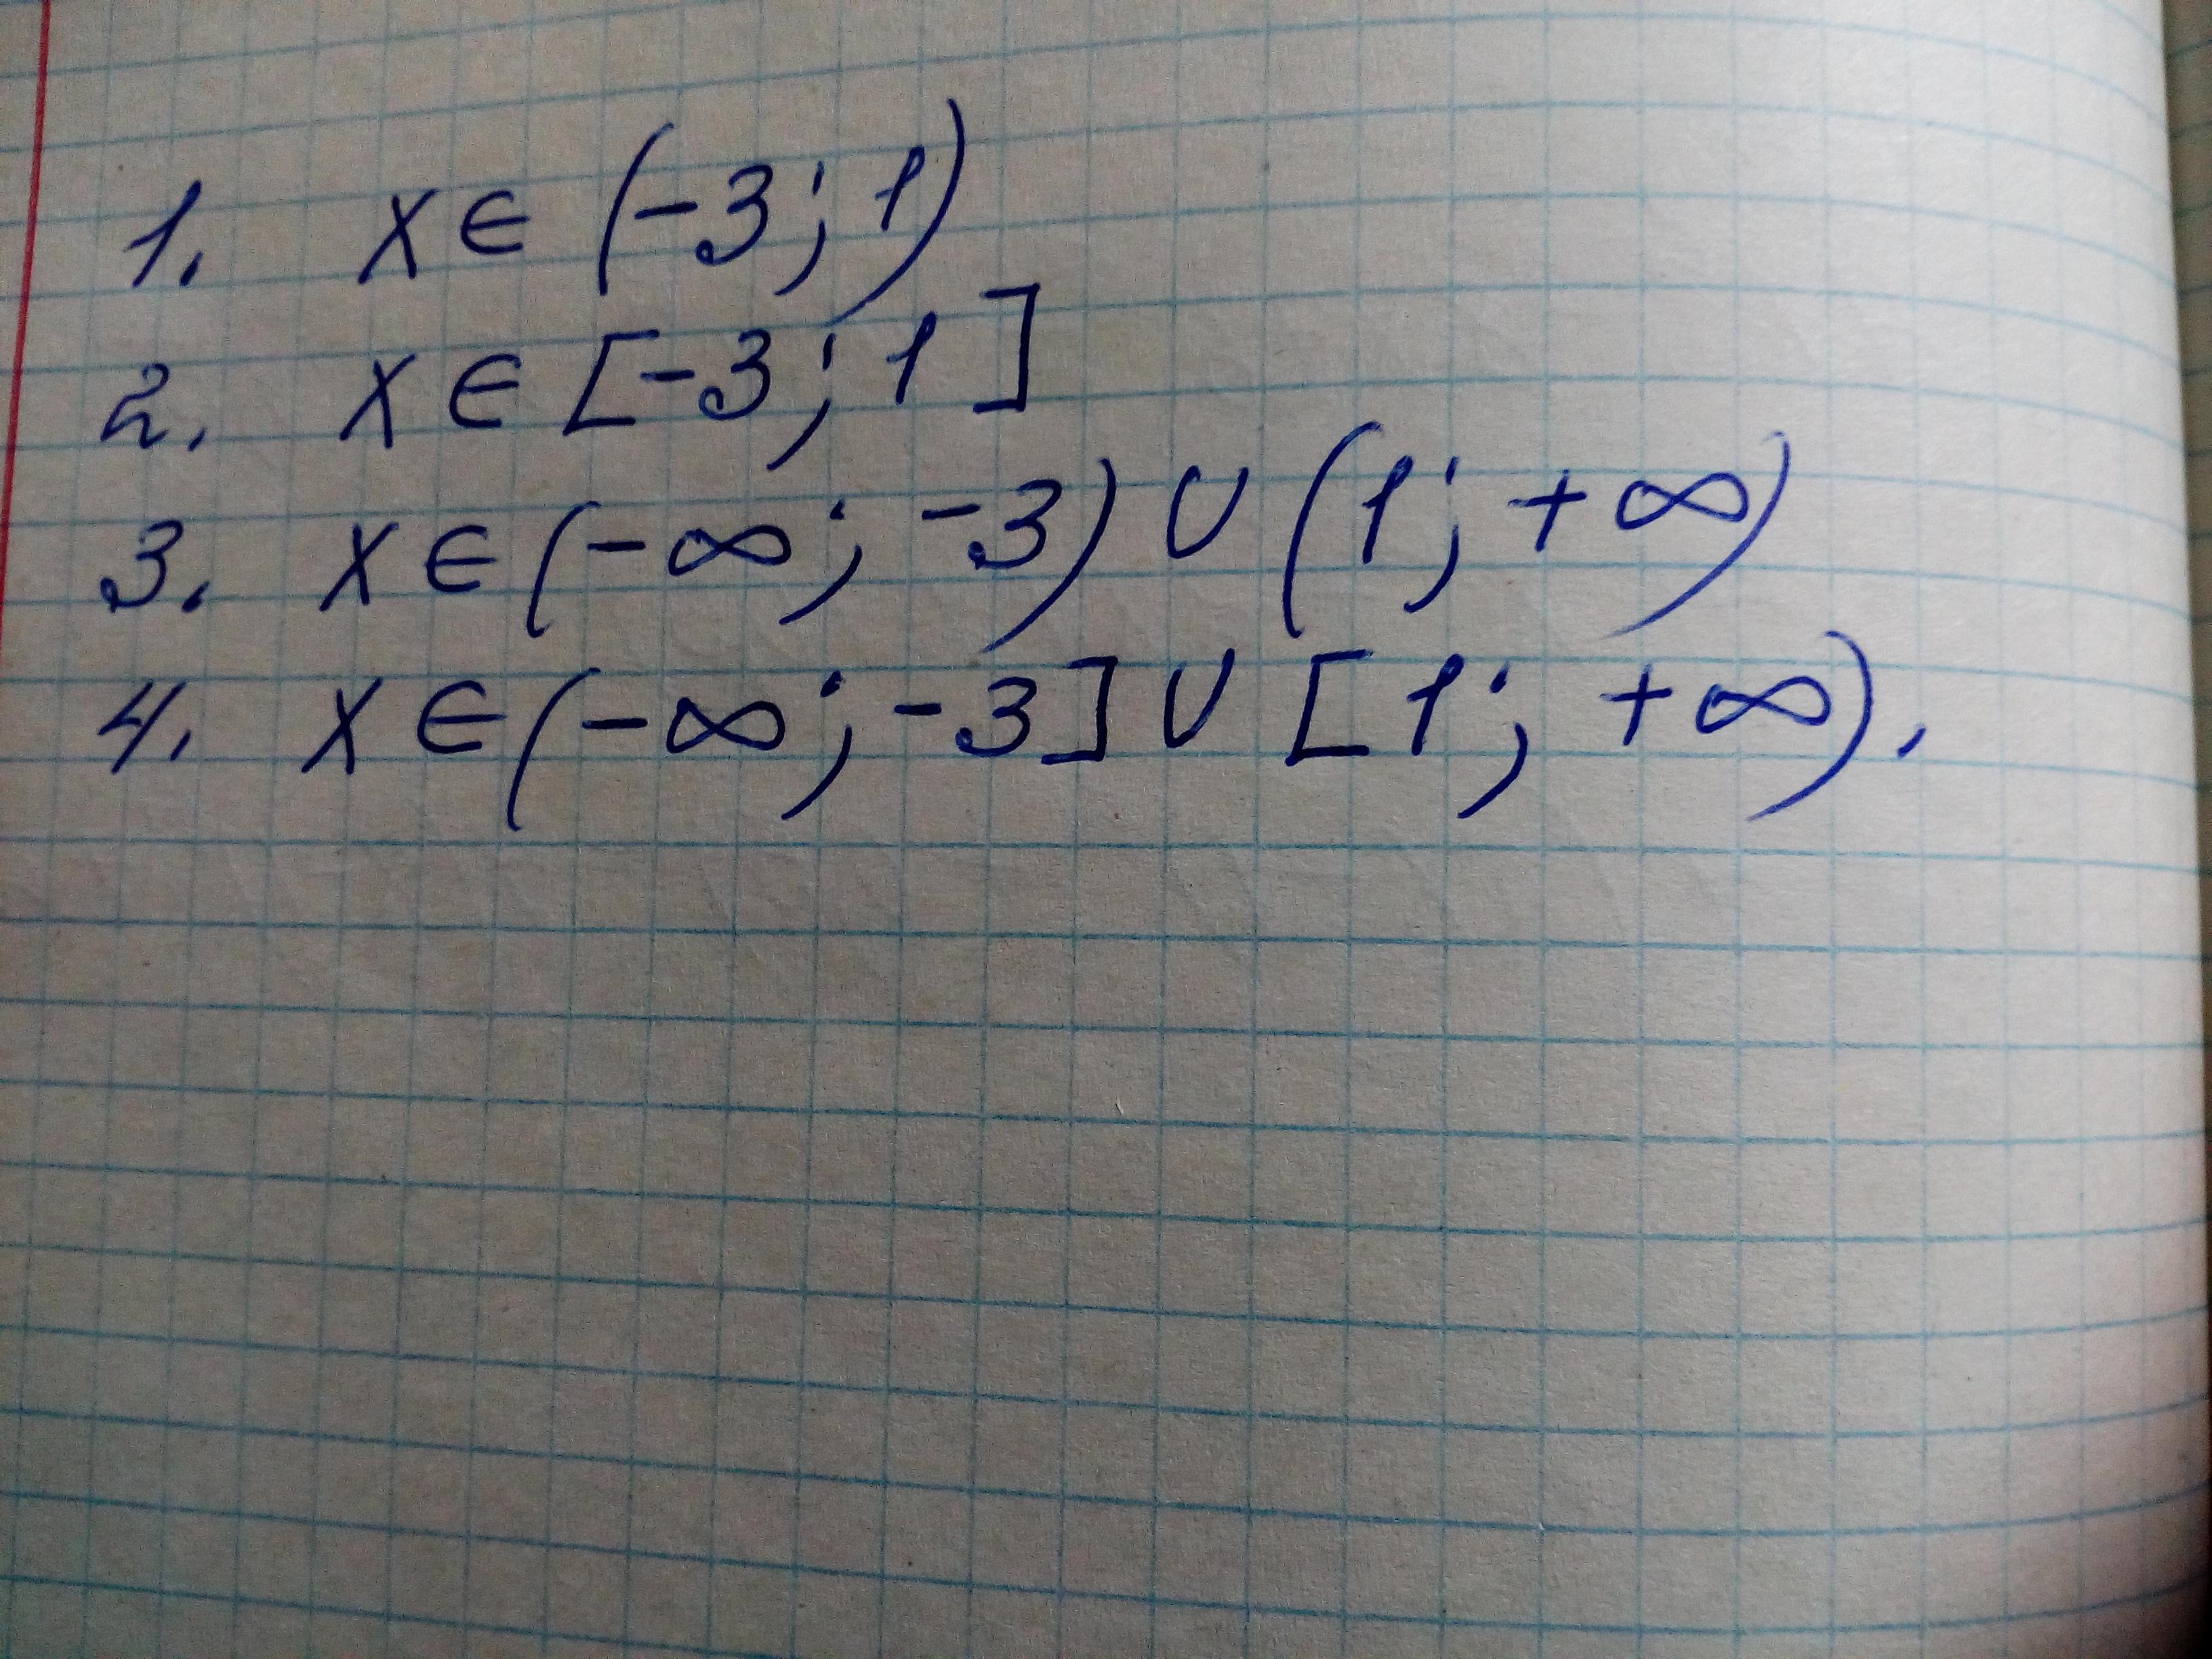 1. x ∈ (-3; 1)
2. x ∈ [-3; 1]
3. x ∈ (-∞; -3) ∪ (1; +∞)
4. x ∈ (-∞; -3] ∪ [1; +∞).